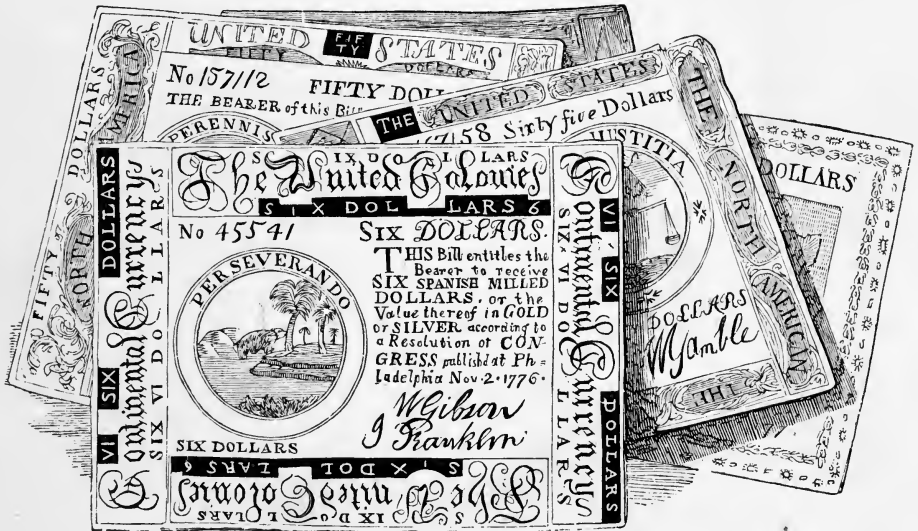 UNITED FIF STATES
FIFTY TY DOLLARS
No 157112 FIFTY DOL
THE BEARER of this Bil
PERENNIS
FIFTY DOLLARS
NORTH AMERICA
THE UNITED STATES
58 Sixty five Dollars
JUSTITIA
DOLLARS
WGamble
THE
NORTH
AMERICAN
THE
DOLLARS
S IX DO L LARS
The United Colonies
SIX DOL LARS 6
No 45541 SIX DOLLARS.
PERSEVERANDO
THIS Bill entitles the
Bearer to receive
SIX SPANISH MILLED
DOLLARS, or the
Value thereof in GOLD
or SILVER according to
a Resolution of CON-
GRESS publishd at Ph=
ladelphia Nov. 2. 1776.
WGibson
J Franklin
SIX DOLLARS
VI SIX DOLLARS
Continental Currency
SIX VI DO. L LARS
VI SIX DOLLARS
Continental Currency
SIX VI DOL LARS
S IX DOL LARS 6
The United Colonies
S IX Do L LARS